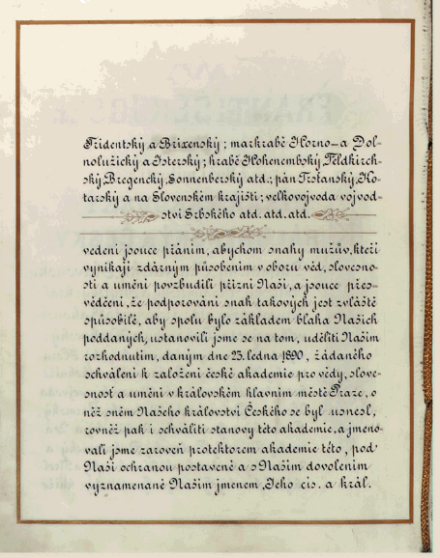 Tridentský a Brixenský; markrabě Horno- a Dol-
nolužický a Isterský; hrabě Hohenembský, Feldkirch-
ský, Bregencký, Sonnenberský atd.; pán Terstanský, Ko-
tarský a na Slovenském krajišti; velkovojvoda vojvod-
ství Srbského atd. atd. atd.
vedeni jsouce přáním, abychom snahy mužův, kteří
vynikají zdárným působením v oboru věd, slovesno-
sti a umění povzbudili přízní Naší, a jsouce přes-
vědčeni, že podporování snah takových jest zvláště
způsobilé, aby spolu bylo základem blaha Našich
poddaných, ustanovili jsme se na tom, uděliti Naším
rozhodnutím, daným dne 23. ledna 1890, žádaného
schválení k založení české akademie pro vědy, slove-
snost a umění v královském hlavním městě Praze, o
něž sněm Našeho království Českého se byl usnesl,
rovněž pak i schváliti stanovy této akademie, a jmeno-
vali jsme zároveň protektorem akademie této, pod
Naší ochranou postavené a s Naším dovolením
vyznamenané Naším jménem, Jeho cís. a král.